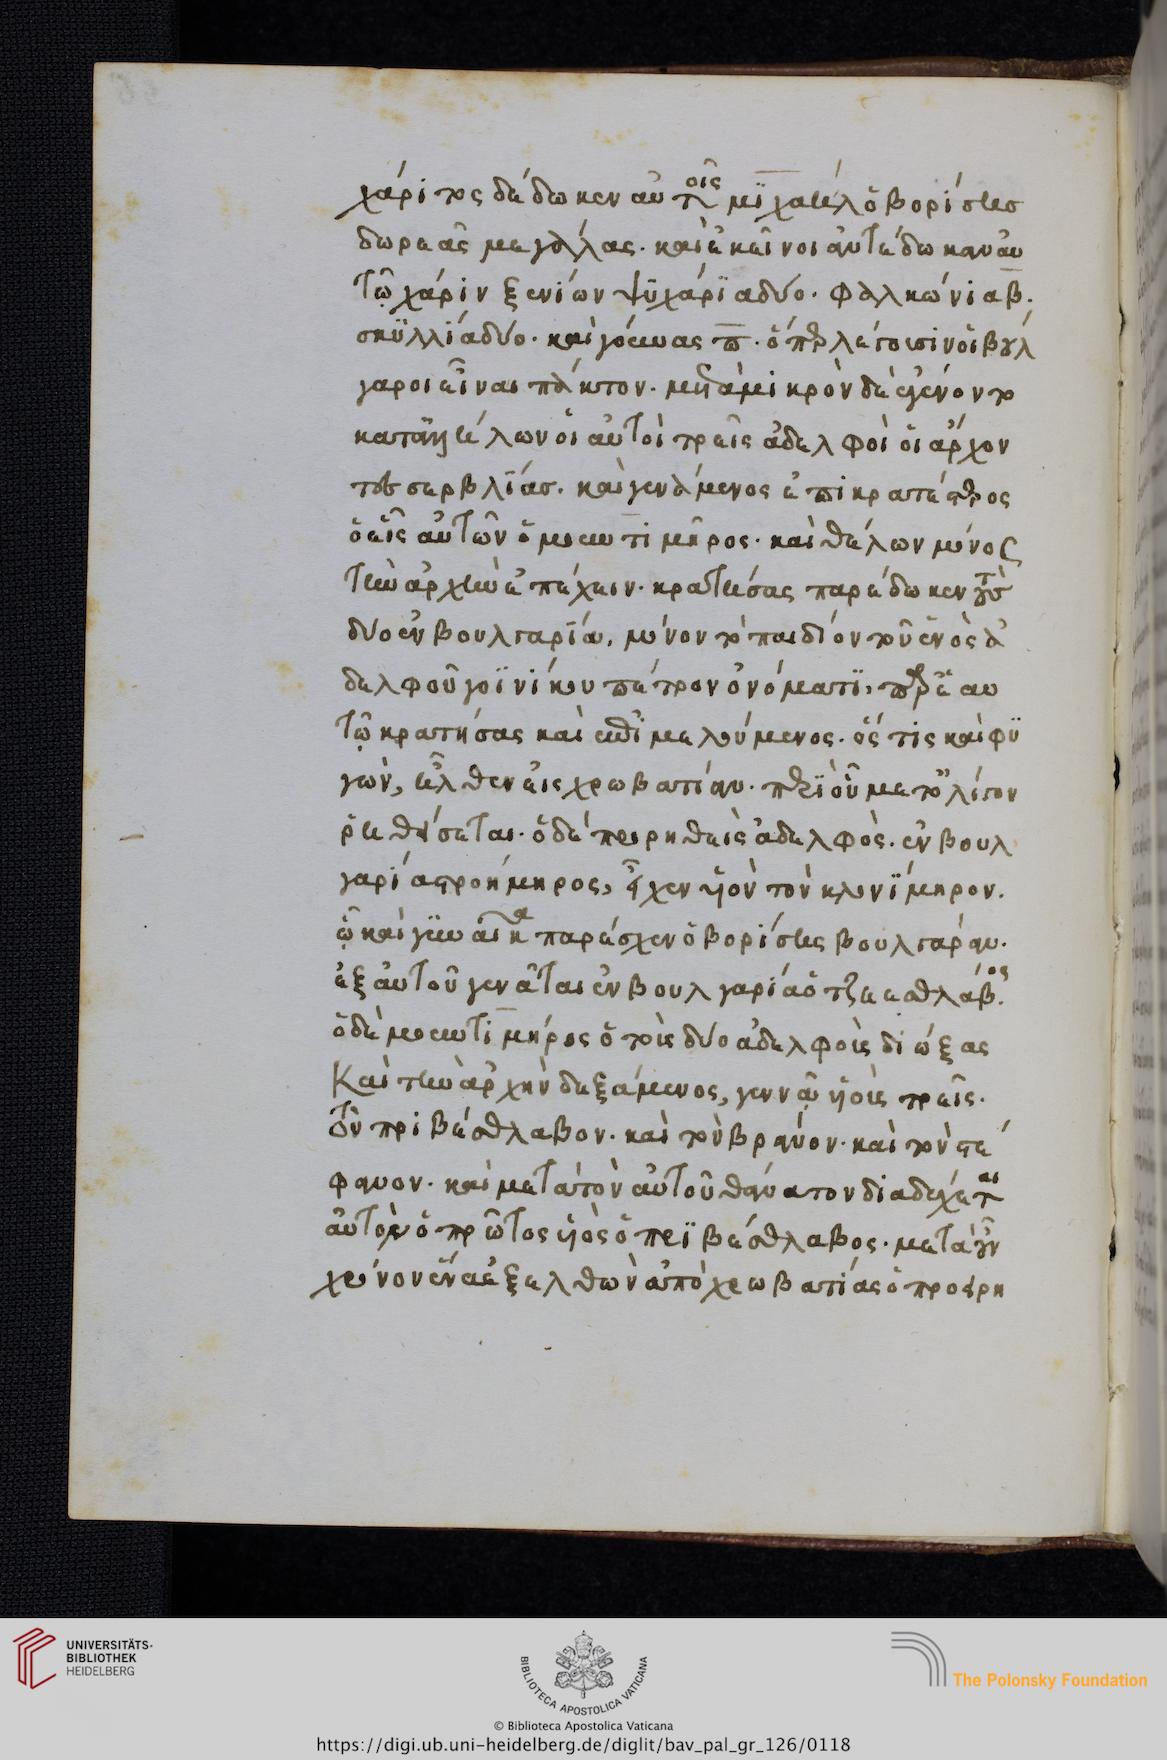 χάριτος δέδωκεν αὐτοῖς μϊχαὴλ ὁ βορίσησ
δωρεὰς μεγάλας. καὶ ἐκεῖνοι ἀντέδωκαν αὐ
τῷ χάριν ξενίων ψϋχάρϊα δύο. φαλκώνια β.
σκϋλλία δύο. καὶ γούνας π. ὅπερ λέγουσιν οἱ βουλ
γαροι εἶναι πάκτον. μετὰ μικρὸν δὲ ἐγένοντο
κατ' ἀλλήλων οἱ αὐτοὶ τρεῖς ἀδελφοὶ οἱ ἄρχον
τες σερβλΐασ. καὶ γενάμενος ἐπικρατέστερος
ὁ εἷς αὐτῶν ὁ μουντιμῆρος. καὶ θέλων μόνος
τὴν ἀρχὴν ἐπέχειν. κρατήσας παρέδωκεν τοὺς
δύο ἐν βουλγαρΐα, μόνον τὸ παιδίον τοῦ ἑνὸς ἀ
δελφοῦ γοϊνίκου πέτρον ὀνόματϊ, παρ' ἑαυ
τῷ κρατήσας καὶ ἐπιμελούμενος. ὅς τις καὶ φϋ
γὼν, ἦλθεν εἰς χρωβατίαν. περὶ οὗ μετ' ὀλίγον
ῥηθήσεται. ὁ δὲ προρρηθεὶς ἀδελφὸς. ἐν βουλ
γαρία στροήμηρος, εἶχεν υἱὸν τὸν κλονϊμηρον.
ᾧ καὶ γυναῖκα παρέσχεν ὁ βορίσης βουλγάραν.
ἐξ αὐτοῦ γενᾶται ἐν βουλγαρία ὁ τζεεσθλάβος.
ὁ δὲ μουντιμῆρος ὁ τοὺς δύο ἀδελφοὺς διώξας
Καὶ τὴν ἀρχὴν δεξάμενος, γεννᾷ υἱοὺς τρεῖς.
τὸν πριβέσθλαβον. καὶ τὸν βράνον. καὶ τὸν στέ
φανον. καὶ μετὰ τὸν αὐτοῦ θάνατον διαδέχεται
αὐτὸν ὁ πρῶτος υἱὸς ὁ πρϊβέσθλαβος. μετὰ γοῦν
χρόνον ἕνα ἐξελθὼν ἀπὸ χρωβατίας ὁ προειρη
UNIVERSITÄTS-
BIBLIOTHEK
HEIDELBERG
BIBLIOTECA APOSTOLICA VATICANA
The Polonsky Foundation
© Biblioteca Apostolica Vaticana
https://digi.ub.uni-heidelberg.de/diglit/bav_pal_gr_126/0118